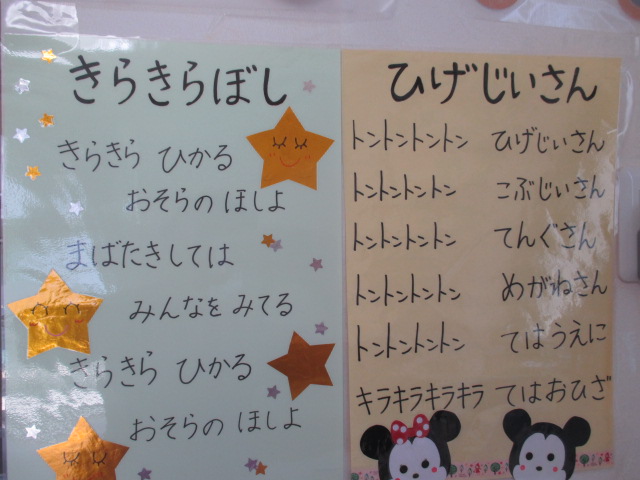 きらきらぼし
きらきら ひかる
おそらの ほしよ
まばたきしては
みんなを みてる
きらきら ひかる
おそらの ほしよ
ひげじいさん
トントントントン ひげじいさん
トントントントン こぶじいさん
トントントントン てんぐさん
トントントントン めがねさん
トントントントン てはうえに
キラキラキラキラ てはおひざ